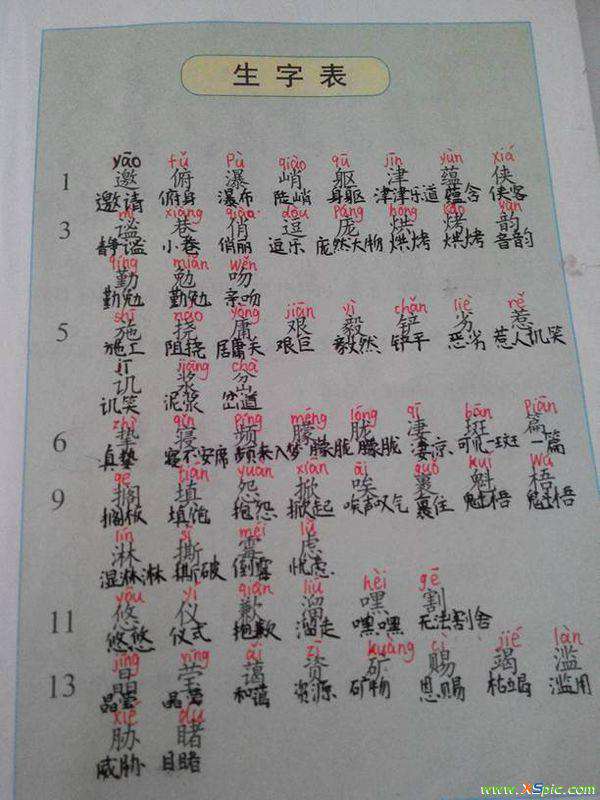 生字表
yāo fǔ pù qiào qū jīn yùn xiá
1 邀 俯 瀑 峭 躯 津 蕴 侠
邀请 俯身 瀑布 陡峭 身躯 津津乐道 蕴含 侠客
mì xiàng qiào dòu páng hōng kǎo yùn
3 谧 巷 俏 逗 庞 烘 烤 韵
静谧 小巷 俏丽 逗乐 庞然大物 烘烤 烘烤 音韵
qíng miǎn wěn
勤 勉 吻
勤勉 勤勉 亲吻
shī náo yōng jiān yì chǎn liè rě
5 施 挠 庸 艰 毅 铲 劣 惹
施工 阻挠 居庸关 艰巨 毅然 铲平 恶劣 惹人讥笑
jī jiāng chà
讥 浆 岔
讥笑 泥浆 岔道
zhì qǐn pín méng lóng qī bān piān
6 挚 寝 频 朦 胧 凄 斑 篇
真挚 寝不安席 频来入梦 朦胧 朦胧 凄凉 可见一斑 一篇
gē tián yuàn xiān āi guǒ kuí wú
9 搁 填 怨 掀 唉 裹 魁 梧
搁板 填饱 抱怨 掀起 唉声叹气 裹住 魁梧 魁梧
lín sī méi lǜ
淋 撕 霉 虑
湿淋淋 撕破 倒霉 忧虑
yōu yí qiàn liū hēi gē
11 悠 仪 歉 溜 嘿 割
悠悠 仪式 抱歉 溜走 嘿嘿 无法割舍
jīng yíng ǎi zī kuàng cì jié làn
13 晶 莹 蔼 资 矿 赐 竭 滥
晶莹 晶莹 和蔼 资源 矿物 恩赐 枯竭 滥用
xié dǔ
胁 睹
威胁 目睹
www.XSpic.com